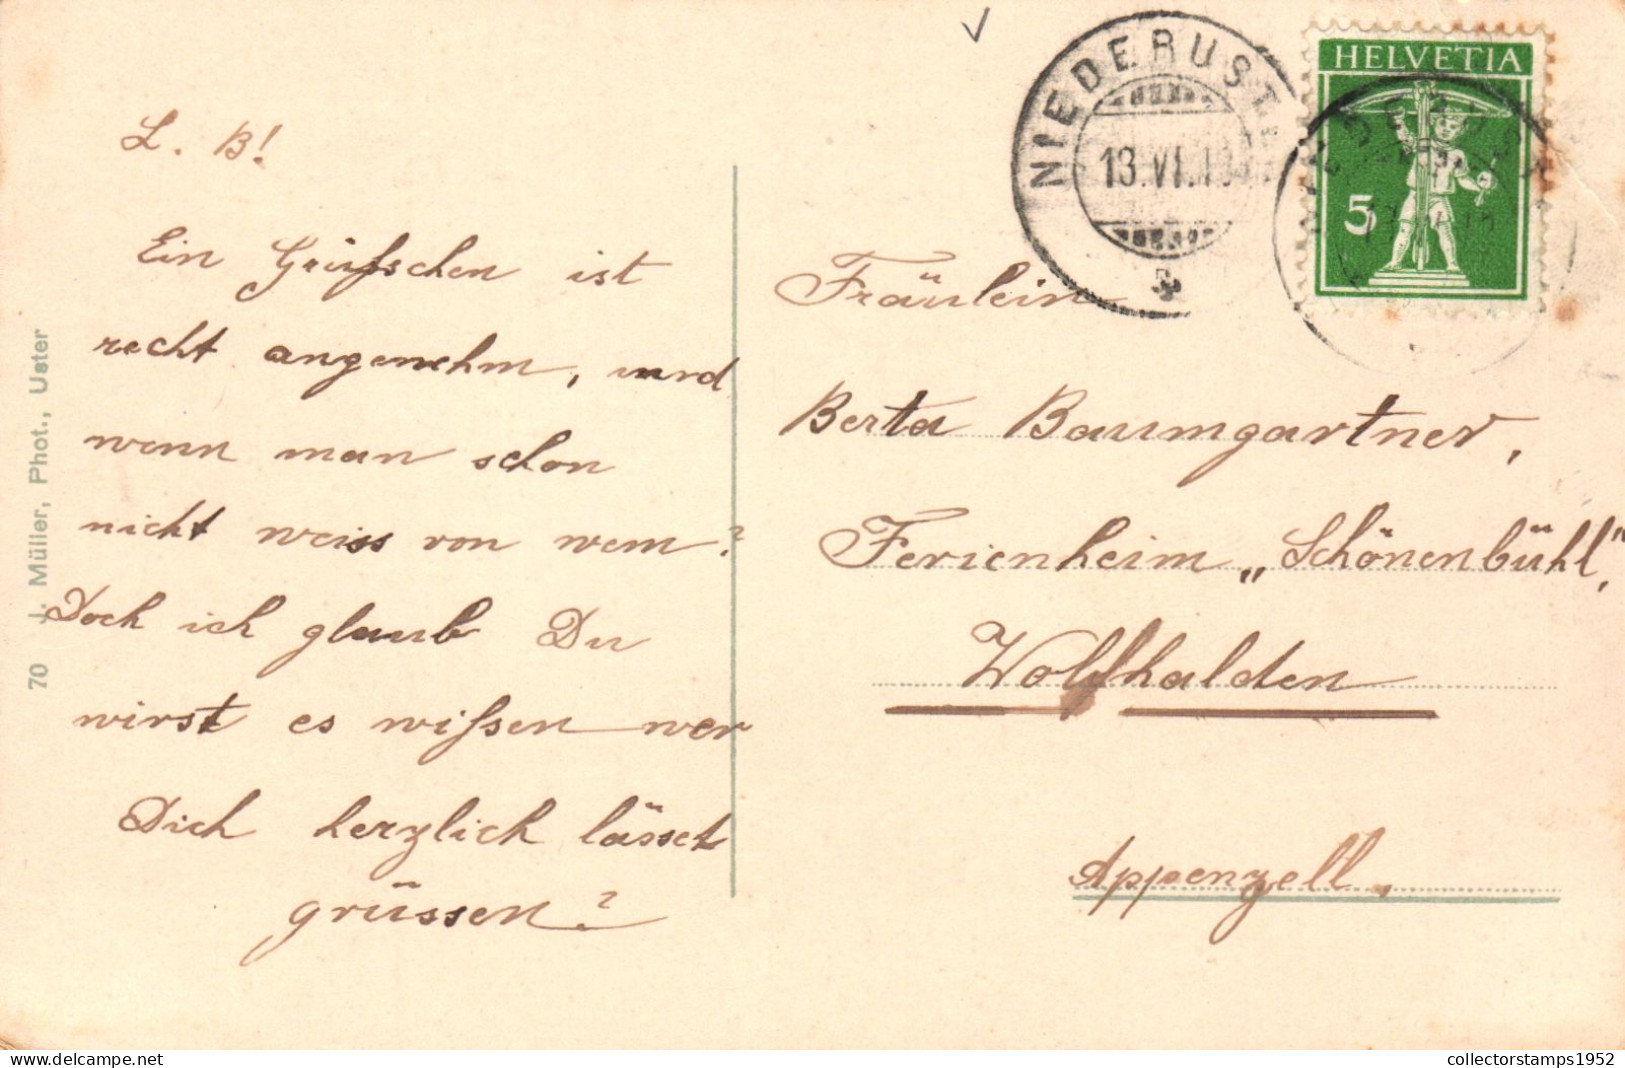 L. B!
Ein Grüsschen ist
recht angenehm, und
wenn man schon
nicht weiss von wem?
Doch ich glaub Du
wirst es wissen wer
Dich herzlich lässet
grüssen?
70 J. Müller, Phot., Uster
NIEDERUST
13.VI.1
HELVETIA
5
Fräulein
Berta Baumgartner,
Ferienheim „Schönenbühl",
Wolfhalden
Appenzell.
collectorstamps1952